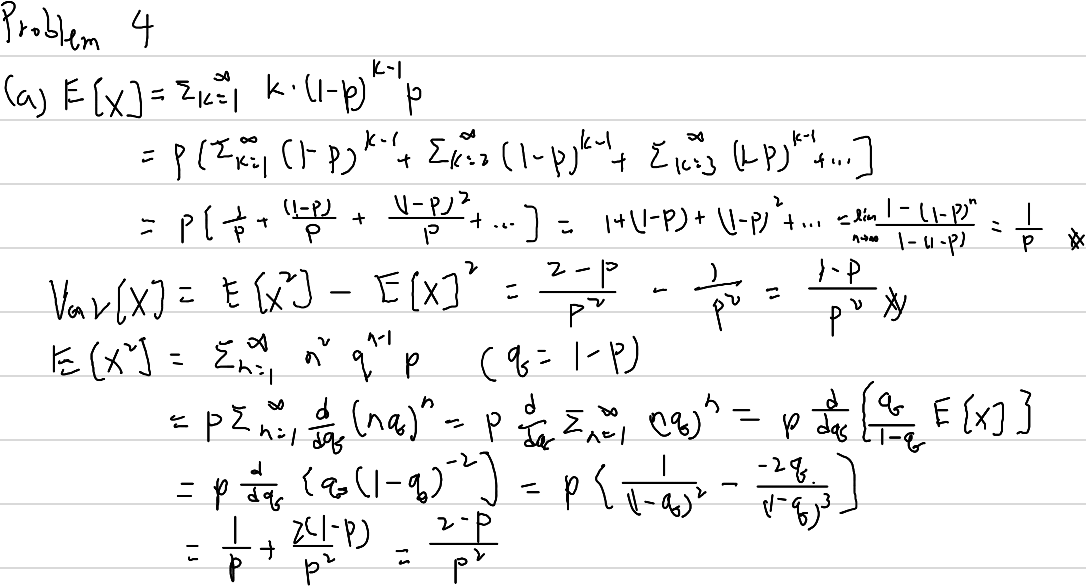 Problem 4
(a) E[X] = Σ_{k=1}^∞ k·(1-p)^{k-1} p
= p[Σ_{k=1}^∞ (1-p)^{k-1} + Σ_{k=2}^∞ (1-p)^{k-1} + Σ_{k=3}^∞ (1-p)^{k-1} + ...]
= p[1/p + (1-p)/p + (1-p)^2/p + ...] = 1+(1-p)+(1-p)^2+... = lim_{n→∞} (1-(1-p)^n)/(1-(1-p)) = 1/p ※
Var[X] = E[X^2] - E[X]^2 = (2-p)/p^2 - 1/p^2 = (1-p)/p^2 ※
E[X^2] = Σ_{n=1}^∞ n^2 q^{n-1} p (q = 1-p)
= p Σ_{n=1}^∞ d/dq (nq)^n = p d/dq Σ_{n=1}^∞ (nq)^n = p d/dq {q/(1-q) E[X]}
= p d/dq {q(1-q)^{-2}} = p {1/(1-q)^2 - (-2q)/(1-q)^3}
= 1/p + 2(1-p)/p^2 = (2-p)/p^2